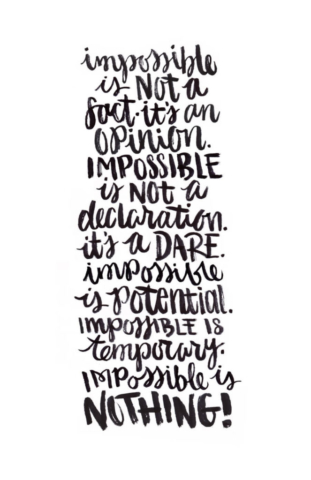 impossible
is NOT a
fact. it's an
OPINION.
IMPOSSIBLE
is NOT a
declaration.
it's a DARE.
impossible
is potential.
IMPOSSIBLE IS
temporary.
IMPOSSIBLE is
NOTHING!